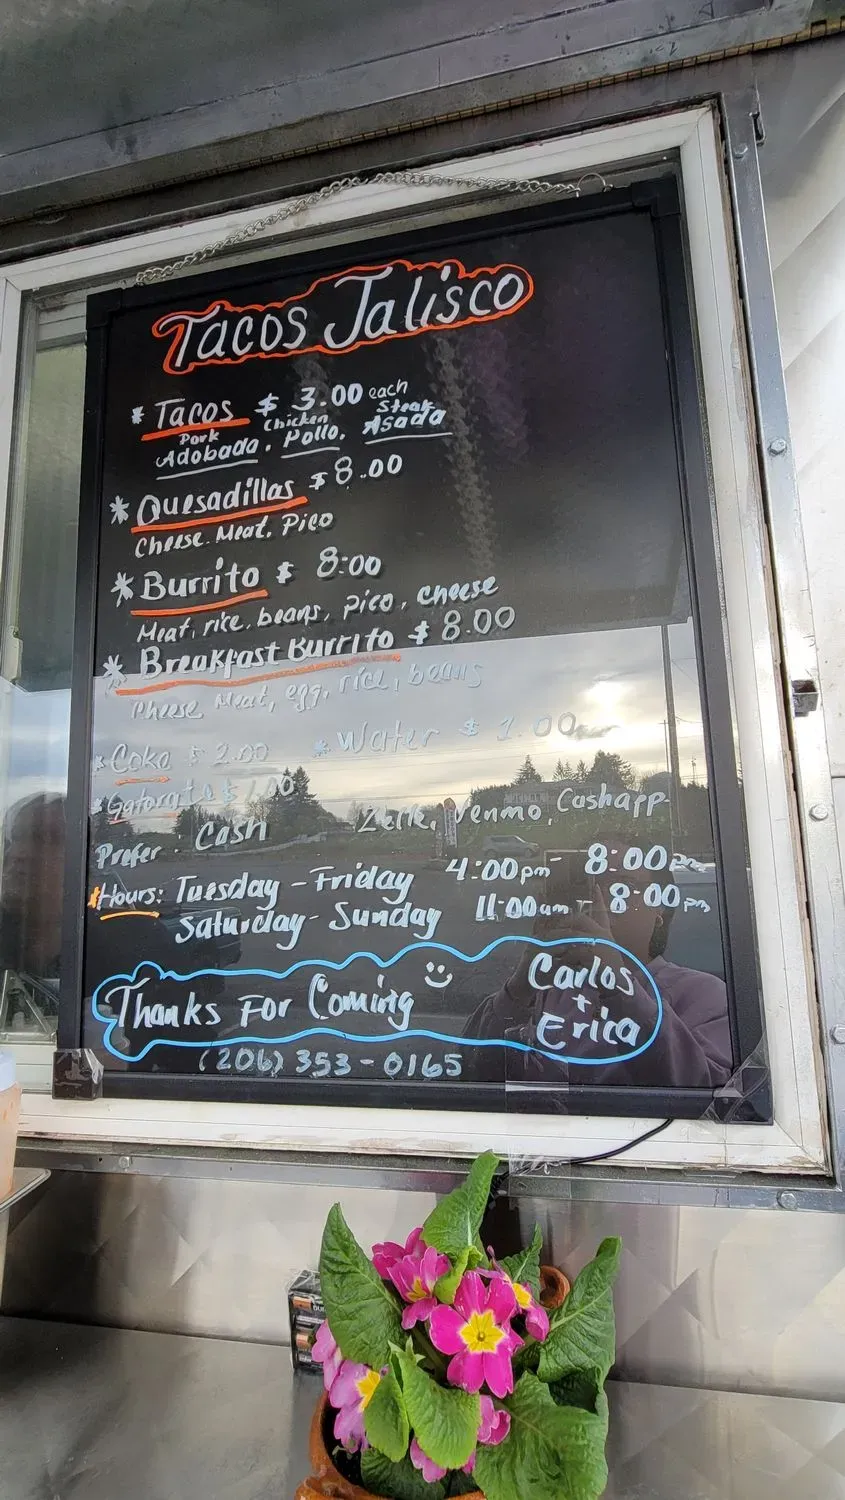 Tacos Jalisco
* Tacos $ 3.00 each
Pork Chicken Steak
Adobada. Pollo. Asada
* Quesadillas $8.00
Cheese. Meat. Pico
* Burrito $ 8:00
Meat, rice, beans, pico, cheese
* Breakfast Burrito $ 8.00
Cheese Meat, egg, rice, beans
* Coke $ 2.00 * Water $ 1.00
* Gatorate $
Prefer. Cash Zelle, Venmo, Cashapp
* Hours: Tuesday - Friday 4:00pm - 8:00pm
Saturday - Sunday 11:00am - 8:00pm
Thanks For Coming Carlos
+
Erica
(206) 353-0165